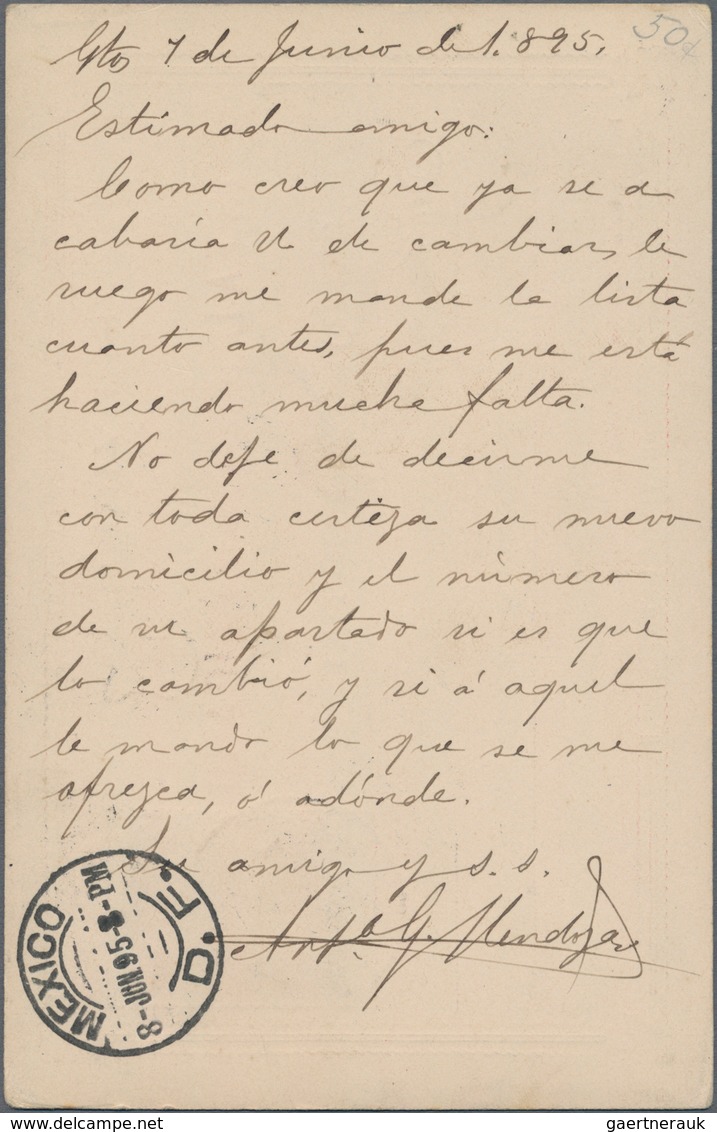 Gto, 7 de Junio de 1.895.
50
Estimado amigo:
Como creo que ya se a
cabaría U. de cambiar, le
ruego me mande la lista
cuanto antes, pues me está
haciendo mucha falta.
No deje de decirme
con toda certeza su nuevo
domicilio y el número
de su apartado si es que
lo cambió, y si á aquel
le mando lo que se me
ofrezca, ó adónde.
Su amigo y s. s.
G. Mendoza
MEXICO D. F.
8-JUN 95-8-PM
gaertnerauk